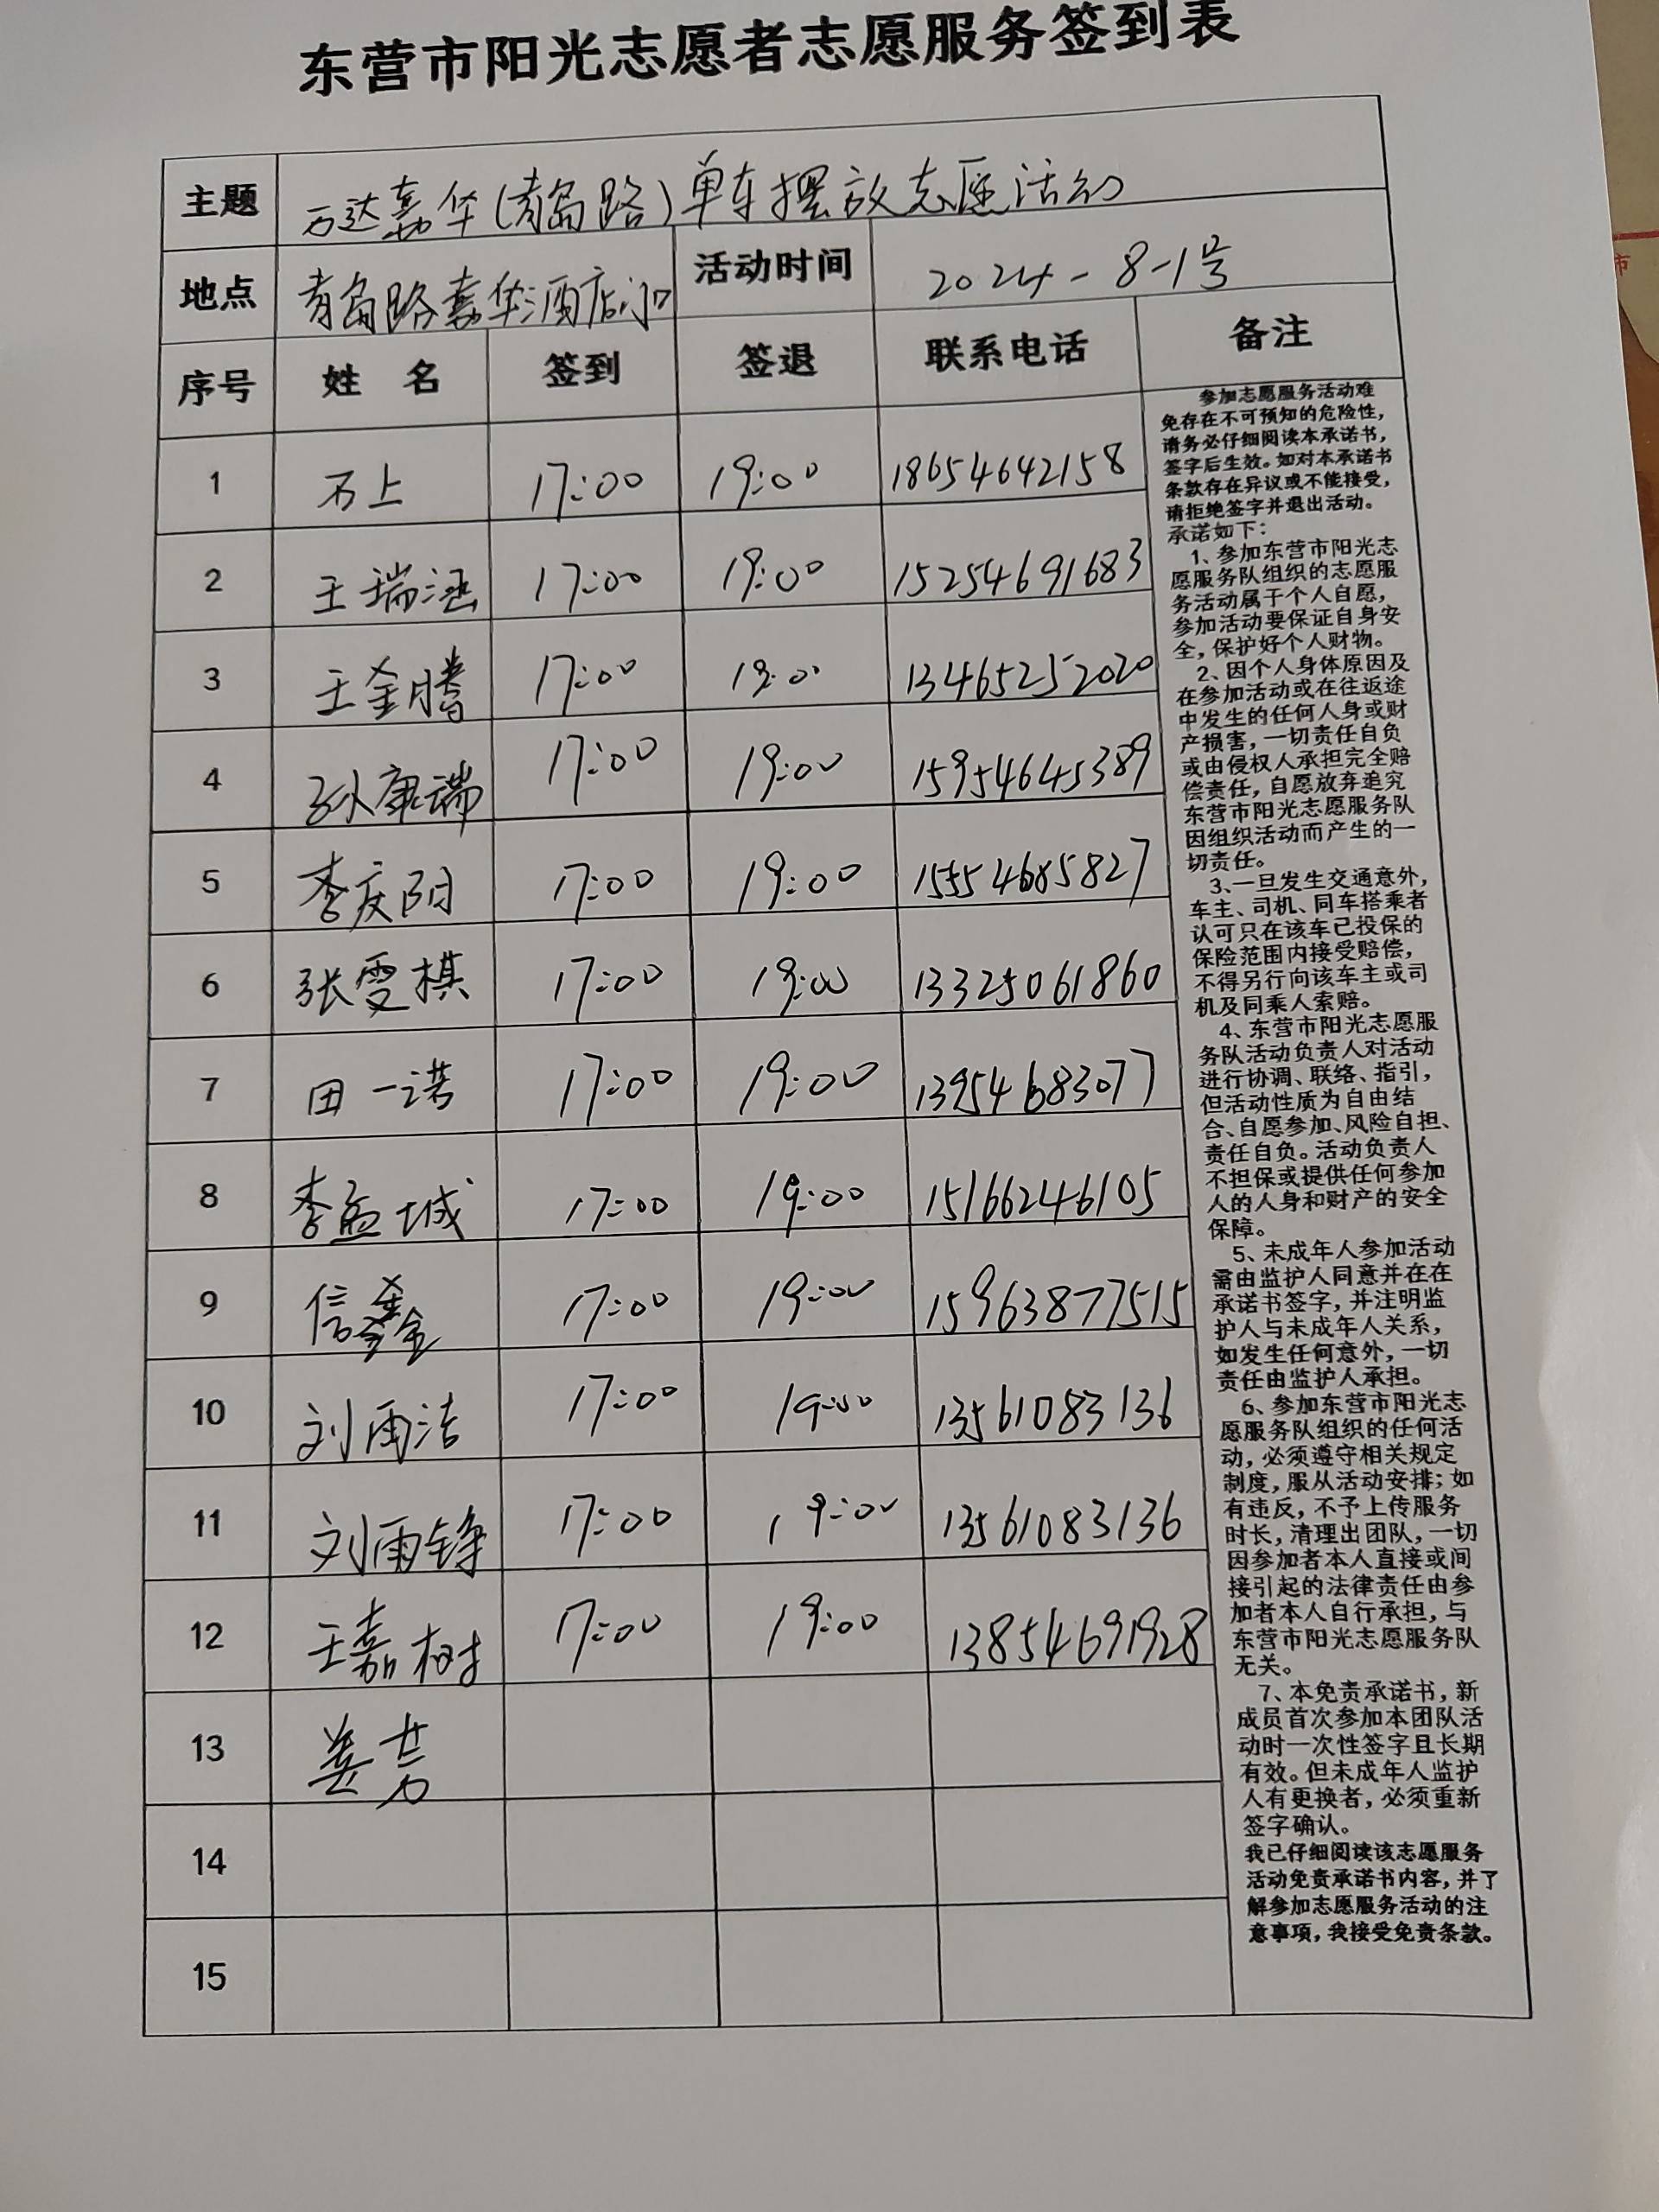 东营市阳光志愿者志愿服务签到表
主题 万达嘉华(青岛路)单车摆放志愿活动
地点 青岛路嘉华酒店门口 活动时间 2024-8-1号
序号 姓 名 签到 签退 联系电话 备注
1 石上 17:00 19:00 18654642158
2 王瑞涵 17:00 19:00 15254691683
3 王金腾 17:00 19:00 13465252020
4 孙康瑞 17:00 19:00 15954645389
5 李庆阳 17:00 19:00 15554685827
6 张雯棋 17:00 19:00 13325061860
7 田一诺 17:00 19:00 13954683077
8 李孟城 17:00 19:00 15166246105
9 信鑫 17:00 19:00 15963877515
10 刘雨洁 17:00 19:00 13561083136
11 刘雨铮 17:00 19:00 13561083136
12 王嘉树 17:00 19:00 13854691928
13 姜
14
15
参加志愿服务活动难
免存在不可预知的危险性，
请务必仔细阅读本承诺书，
签字后生效。如对本承诺书
条款存在异议或不能接受，
请拒绝签字并退出活动。
承诺如下：
1、参加东营市阳光志
愿服务队组织的志愿服
务活动属于个人自愿，
参加活动要保证自身安
全，保护好个人财物。
2、因个人身体原因及
在参加活动或在往返途
中发生的任何人身或财
产损害，一切责任自负
或由侵权人承担完全赔
偿责任，自愿放弃追究
东营市阳光志愿服务队
因组织活动而产生的一
切责任。
3、一旦发生交通意外，
车主、司机、同车搭乘者
认可只在该车已投保的
保险范围内接受赔偿，
不得另行向该车主或司
机及同乘人索赔。
4、东营市阳光志愿服
务队活动负责人对活动
进行协调、联络、指引，
但活动性质为自由结
合、自愿参加、风险自担、
责任自负。活动负责人
不担保或提供任何参加
人的人身和财产的安全
保障。
5、未成年人参加活动
需由监护人同意并在在
承诺书签字，并注明监
护人与未成年人关系，
如发生任何意外，一切
责任由监护人承担。
6、参加东营市阳光志
愿服务队组织的任何活
动，必须遵守相关规定
制度，服从活动安排；如
有违反，不予上传服务
时长，清理出团队，一切
因参加者本人直接或间
接引起的法律责任由参
加者本人自行承担，与
东营市阳光志愿服务队
无关。
7、本免责承诺书，新
成员首次参加本团队活
动时一次性签字且长期
有效。但未成年人监护
人有更换者，必须重新
签字确认。
我已仔细阅读该志愿服务
活动免责承诺书内容，并了
解参加志愿服务活动的注
意事项，我接受免责条款。
市